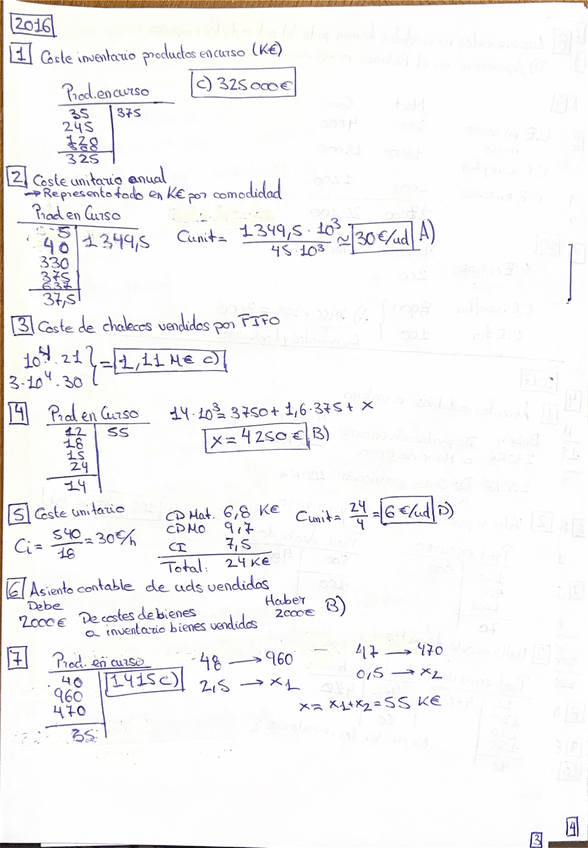 2016
1 Coste inventario productos en curso (K€)
Prod. en curso
C) 325000€
35 375
245
128
325
2 Coste unitario anual
→ Represento todo en K€ por comodidad
Prod en Curso
5
40 1349,5
330
375
637
37,5
Cunit = 1349,5 · 10³ / 45 · 10³ ≈ 30€/ud A)
3 Coste de chalecos vendidos por FIFO
10⁴ · 21
3 · 10⁴ · 30 } = 1,11 M€ C)
4 Prod en Curso
12 55
18
15
24
14
14 · 10³ = 3750 + 1,6 · 375 + x
x = 4250€ B)
5 Coste unitario
Ci = 540/18 = 30€/h
CD Mat. 6,8 K€
CDMO 9,7
CI 7,5
Total: 24 K€
Cunit = 24/4 = 6€/ud D)
6 Asiento contable de uds vendidas
Debe Haber
2000€ De costes de bienes 2000€ B)
a inventario bienes vendidos
7 Prod. en curso
40 1415 C)
960
470
35
48 → 960
2,5 → x1
47 → 470
0,5 → x2
x = x1 + x2 = 55 K€
3
4